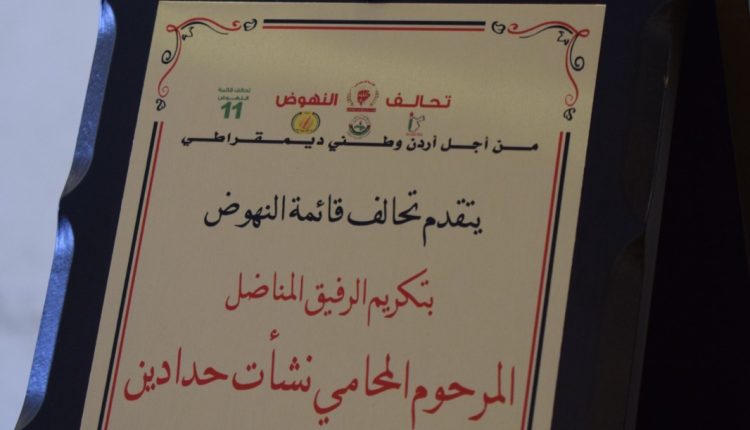 تحالف النهوض
تحالف قائمة
النهوض
11
من أجل أردن وطني ديمقراطي
يتقدم تحالف قائمة النهوض
بتكريم الرفيق المناضل
المرحوم المحامي نشأت حدادين